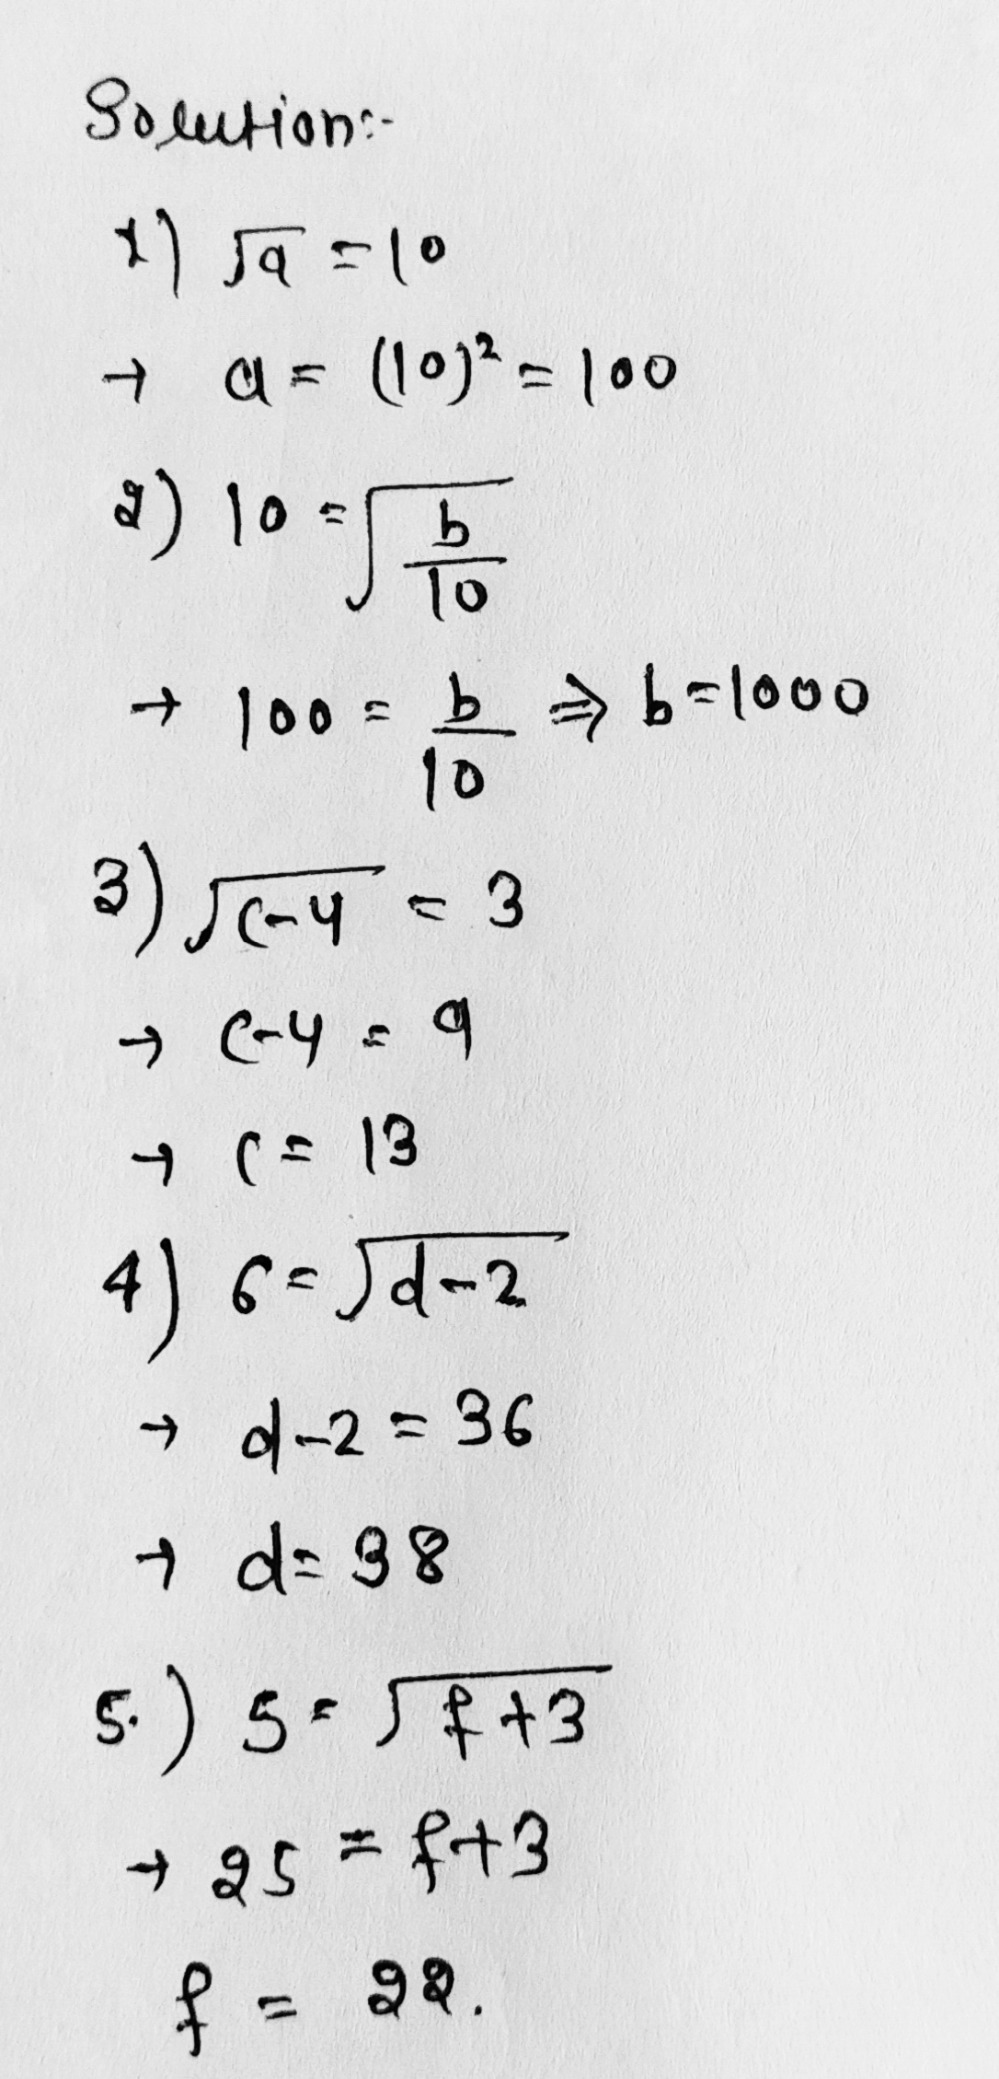 Solution:-
1) √a = 10
→ a = (10)² = 100
2) 10 = √(b/10)
→ 100 = b/10 ⇒ b = 1000
3) √(c-4) = 3
→ c-4 = 9
→ c = 13
4) 6 = √(d-2)
→ d-2 = 36
→ d = 38
5.) 5 = √(f+3)
→ 25 = f+3
f = 22.